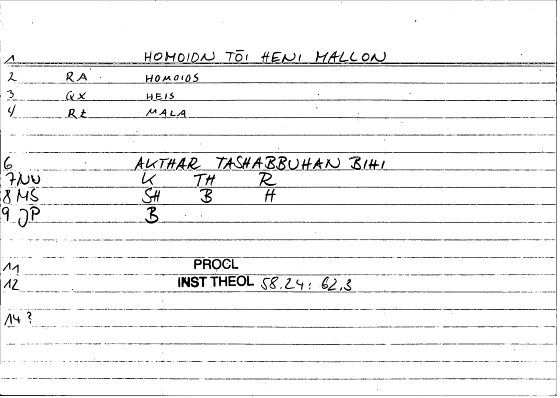 1 HOMOION TŌI HENI MALLON
2 RA HOMOIOS
3 QX HEIS
4 Rt MALA
6 AKTHAR TASHABBUHAN BIHI
7 NN K TH R
8 MS SH B H
9 JP B
11 PROCL
12 INST THEOL 58.24: 62,3
14 ?